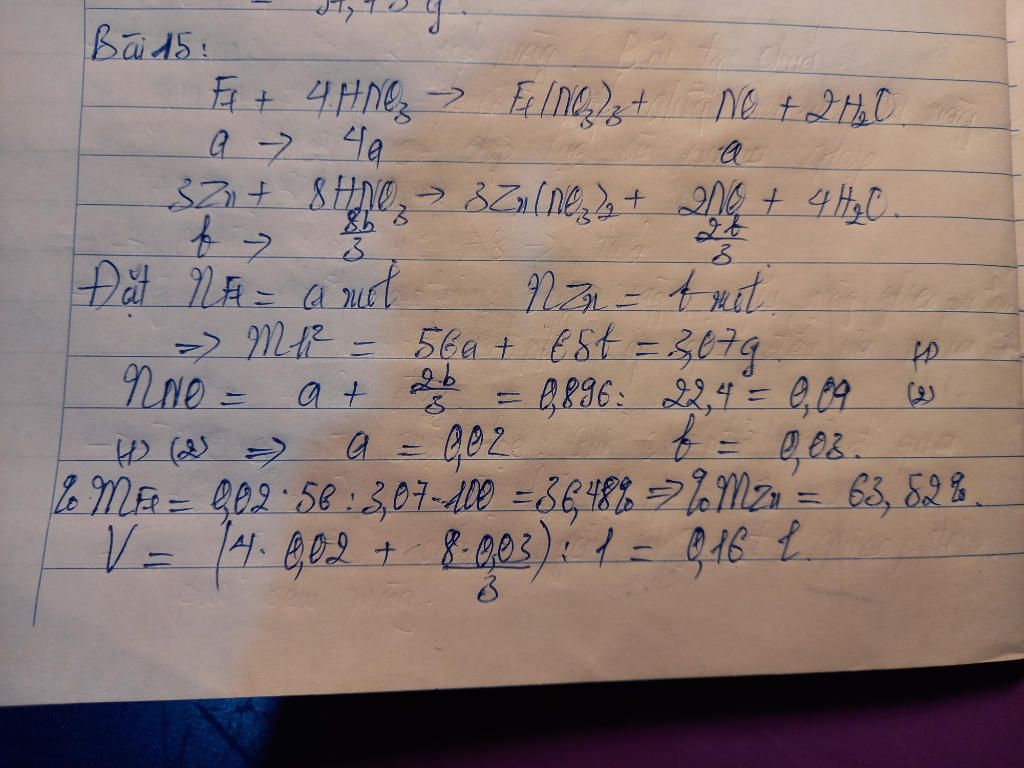 = 37,73 g.
Bài 15:
Fe + 4HNO3 → Fe(NO3)3 + NO + 2H2O.
a → 4a a
3Zn + 8HNO3 → 3Zn(NO3)2 + 2NO + 4H2O.
b → 8b/3 2b/3
Đặt nFe = a mol nZn = b mol.
=> mh² = 56a + 65b = 3,07g. (1)
nNO = a + 2b/3 = 0,896 : 22,4 = 0,04 (2)
(1) (2) => a = 0,02 b = 0,03.
% mFe = 0,02 · 56 : 3,07 · 100 = 36,48% => % mZn = 63,52%.
V = (4 · 0,02 + 8·0,03/3) : 1 = 0,16 l.